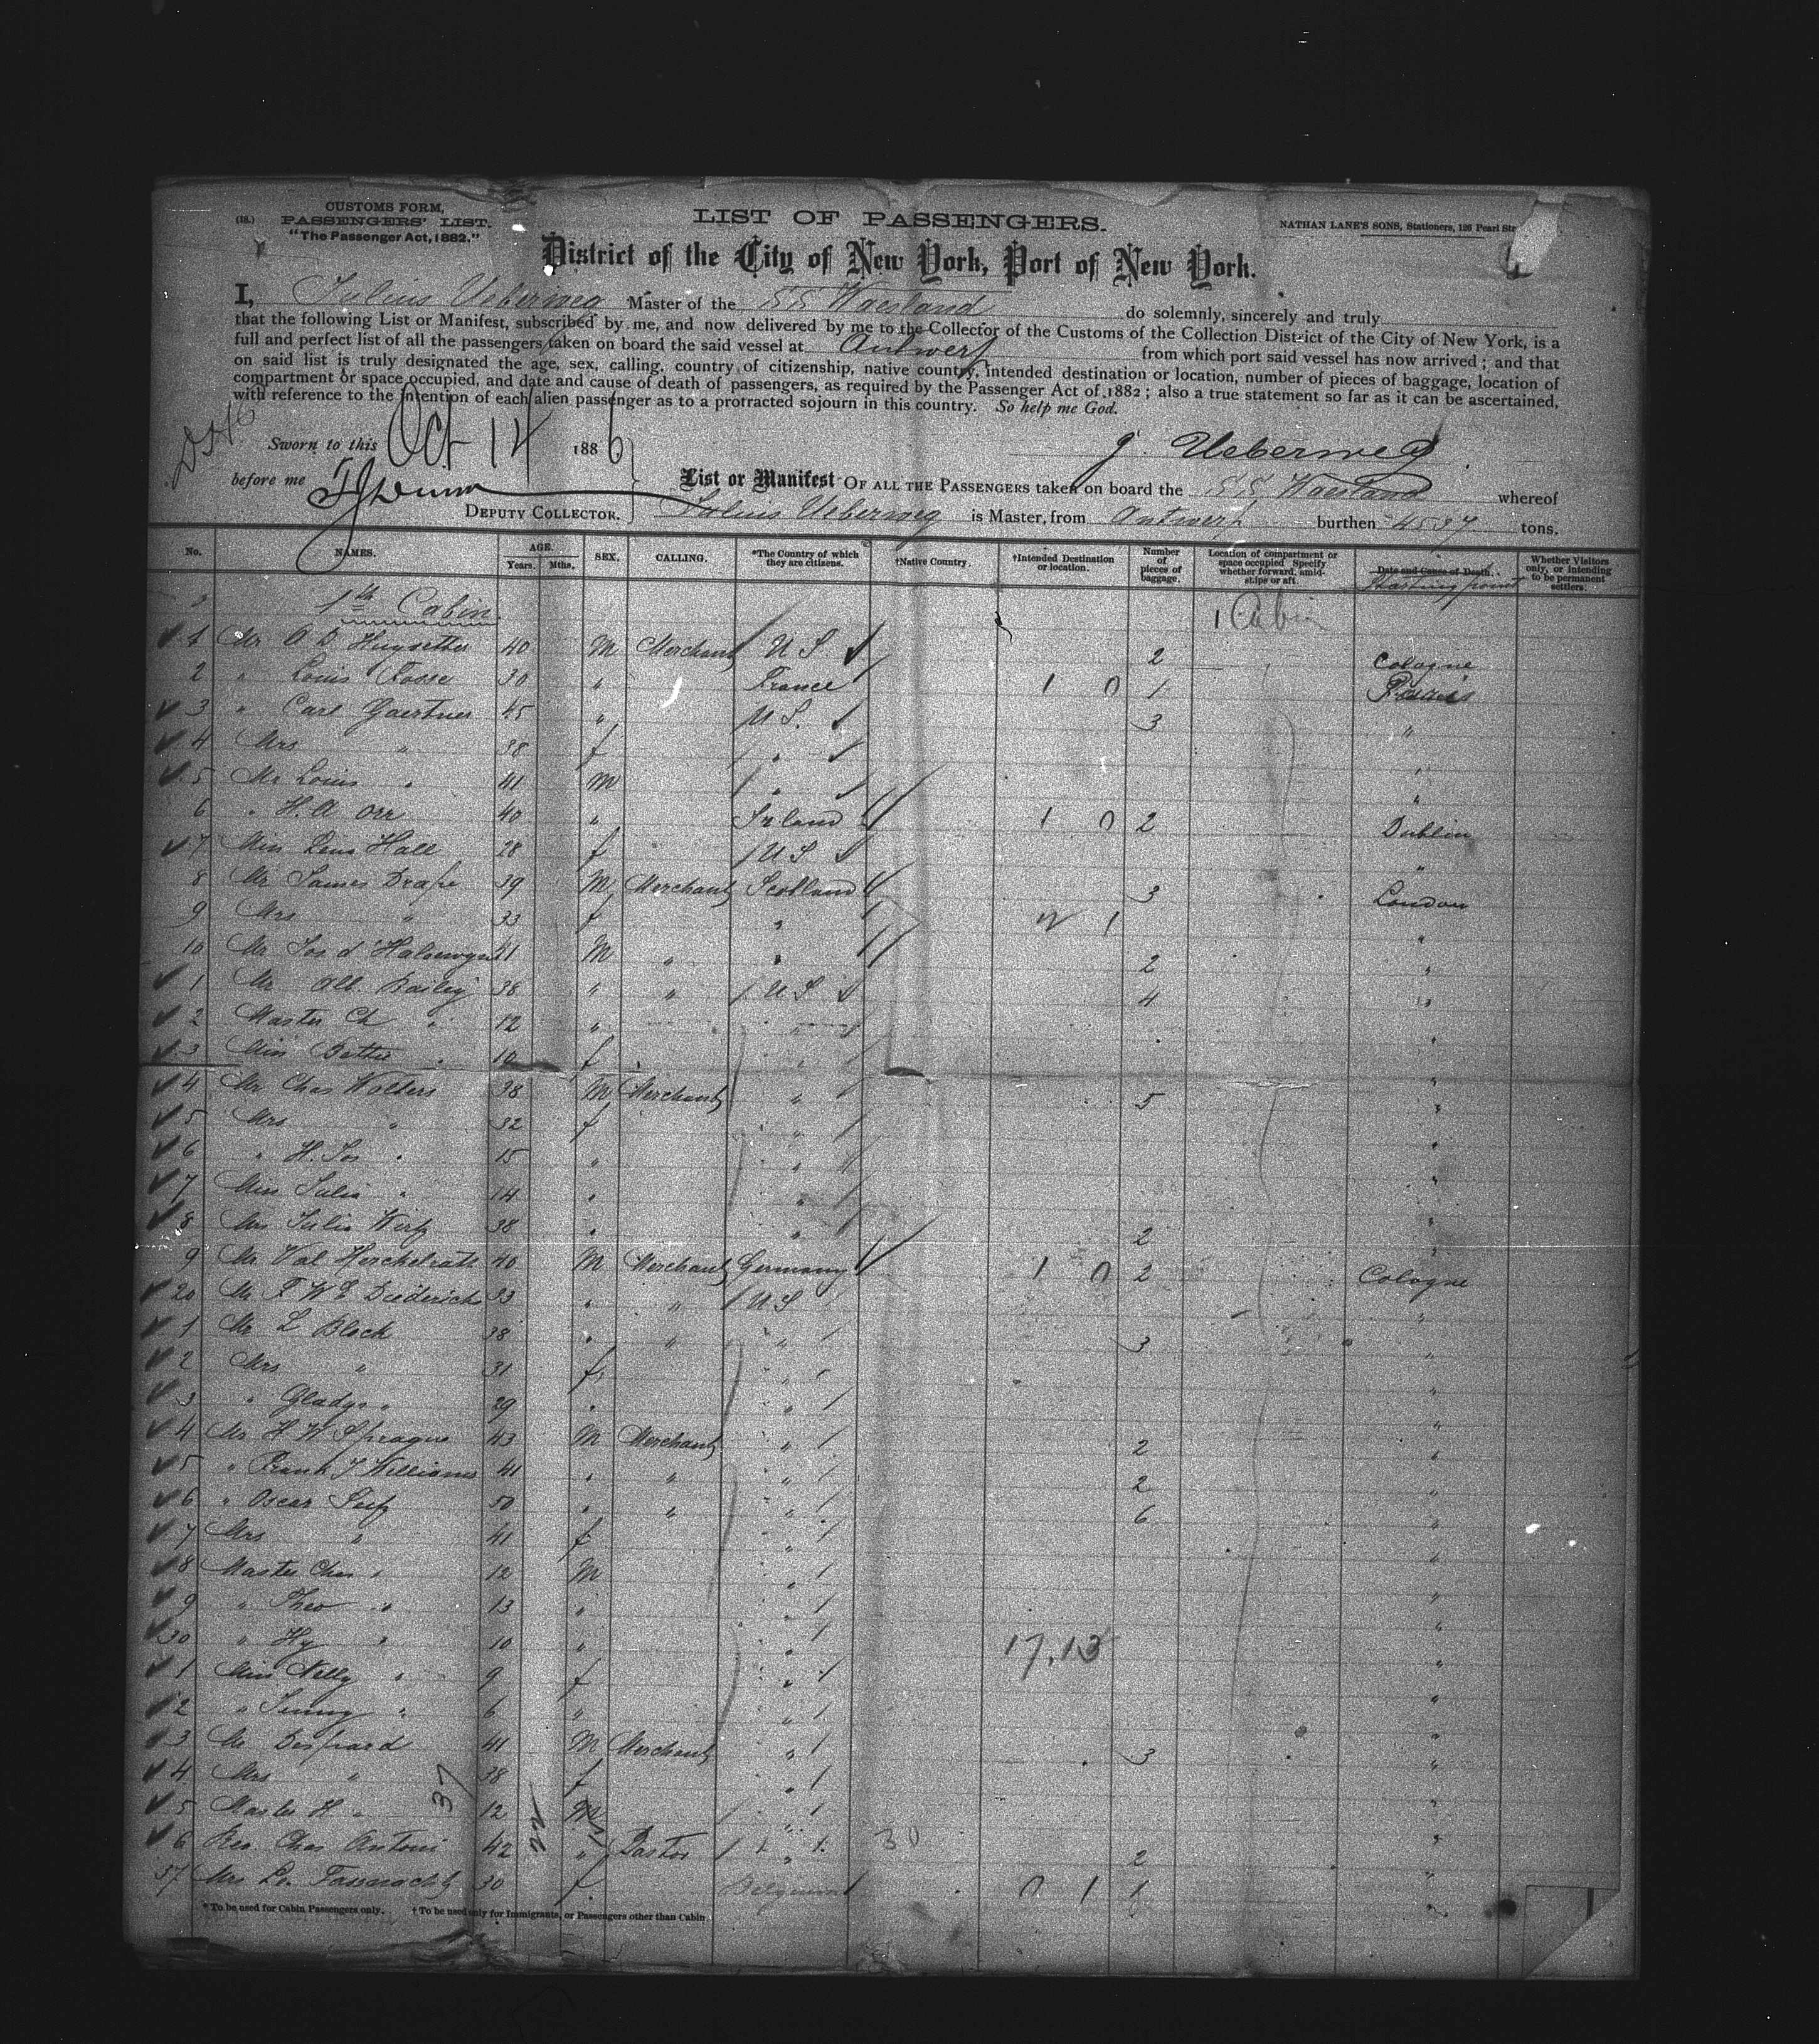 (18.)
CUSTOMS FORM,
PASSENGERS' LIST.
"The Passenger Act, 1882."
LIST OF PASSENGERS.
NATHAN LANE'S SONS, Stationers, 126 Pearl
District of the City of New York, Port of New York.
I, Julius Ueberweg Master of the SS Waesland do solemnly, sincerely and truly
that the following List or Manifest, subscribed by me, and now delivered by me to the Collector of the Customs of the Collection District of the City of New York, is a
full and perfect list of all the passengers taken on board the said vessel at Antwerp from which port said vessel has now arrived; and that
on said list is truly designated the age, sex, calling, country of citizenship, native country, intended destination or location, number of pieces of baggage, location of
compartment or space occupied, and date and cause of death of passengers, as required by the Passenger Act of 1882; also a true statement so far as it can be ascertained,
with reference to the intention of each alien passenger as to a protracted sojourn in this country. So help me God.
Sworn to this Oct 14 1886
J. Ueberweg
before me
DEPUTY COLLECTOR.
List or Manifest OF ALL THE PASSENGERS taken on board the SS Waesland whereof
Julius Ueberweg is Master, from Antwerp burthen 4537 tons.
No. NAMES. AGE. Years. Mths. SEX. CALLING. *The Country of which they are citizens. †Native Country. †Intended Destination or location. Number of pieces of baggage. Location of compartment or space occupied Specify whether forward, amidships or aft. Date and Cause of Death. Starting point Whether Visitors only, or intending to be permanent settlers.
1th Cabin 1 Cabin
1 Mr 40 M Merchant U S 2 Cologne
2 " Louis Fosse 30 " France 1 0 1
3 " Carl Gaertner 45 " U S. 3 "
4 Mrs " 38 f " "
5 Mr Louis " 41 M " "
6 " H. A Orr 40 " Irland 1 0 2 Dublin
7 Miss Hall 28 f U S "
8 Mr James Drape 39 M Merchant Scotland 3 London
9 Mrs " 33 f " 2 1 "
10 Mr Jos 41 M " " 2 "
1 Mr Bailey 38 " " U S 4 "
2 Master Ch " 12 " " "
3 Miss " 10 f " "
4 Mr Chas Wolters 38 M Merchant " 5 "
5 Mrs " 32 f " "
6 " H. Jos " 15 " " "
7 Miss Julia " 14 " " "
8 Mrs Julia Wirtz 38 " " 2 "
9 Mr Val Herchelrath 40 M Merchant Germany 1 0 2 Cologne
20 Mr F W Diederich 33 " " U S "
1 Mr L Block 38 " " " 3 "
2 Mrs " 31 f " "
3 " Gladys " 29 " " "
4 Mr H W Sprague 43 M Merchant " 2 "
5 " Frank J Williams 41 " " " 2 "
6 " Oscar 50 " " " 6 "
7 Mrs " 41 f " "
8 Master Chas " 12 M " "
9 " Theo " 13 " " "
30 " Hy " 10 " " 17.13 "
1 Miss Nelly " 9 f " "
2 " Jenny " 6 " " "
3 Mr Despard 41 M Merchant " 3 "
4 Mrs " 38 f " "
5 Master H " 12 M " "
6 Rev. Chas Antoni 42 " Pastor " 30 2 "
37 Mrs 30 f Belgium 0 1 1 "
37
22
15
* To be used for Cabin Passengers only. † To be used only for Immigrants, or Passengers other than Cabin